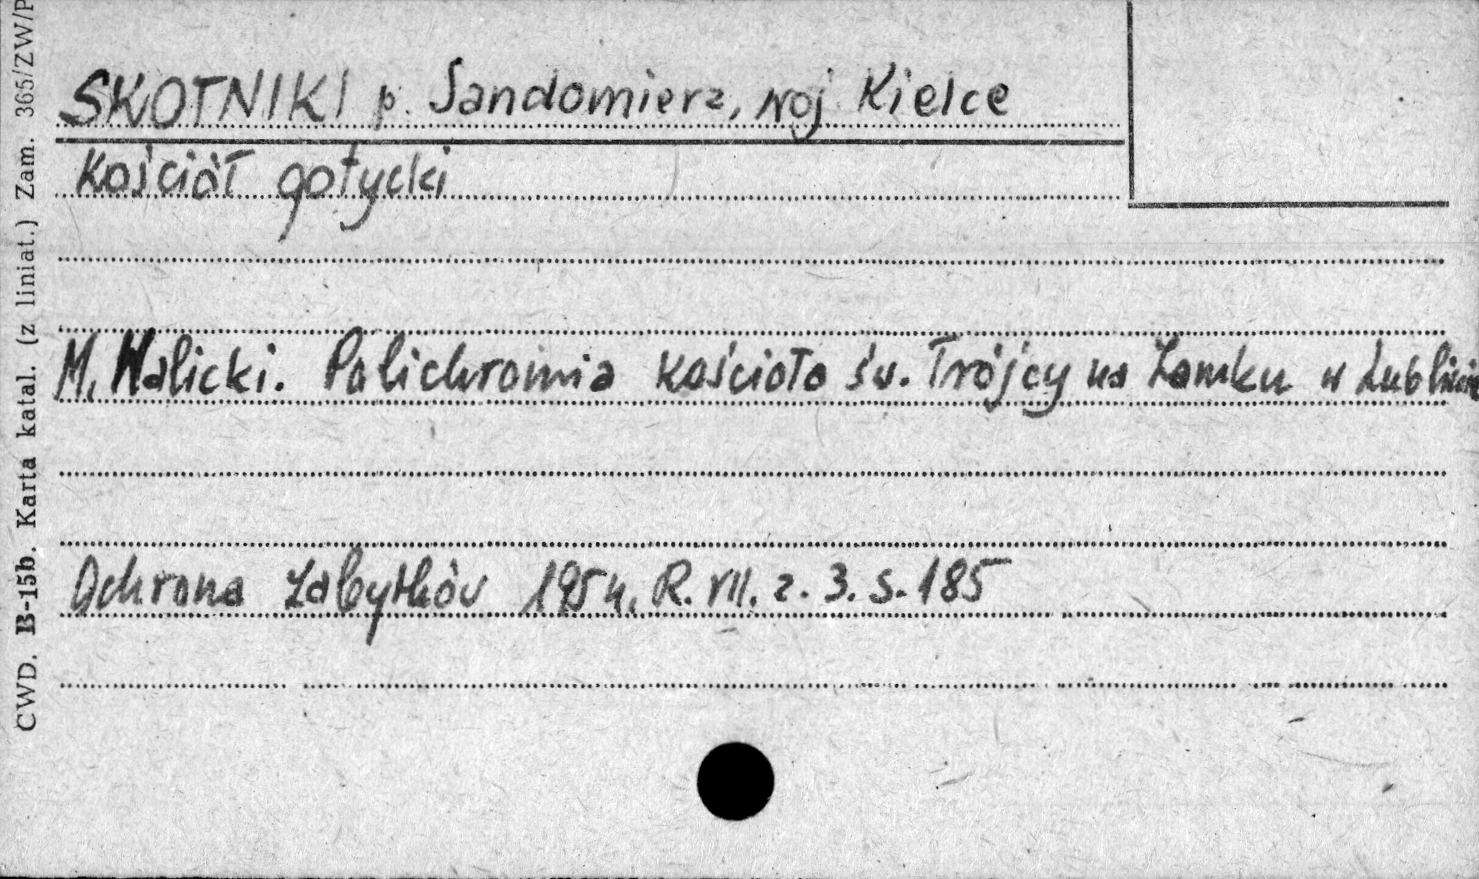 SKOTNIKI p. Sandomierz, woj Kielce
Kościół gotycki
M. Walicki. Polichromia kościoła św. Trójcy na Zamku w Lublinie
Ochrona Zabytków 1954. R. VII. z. 3. s. 185
CWD. B-15b. Karta katal. (z liniat.) Zam. 365/ZW/P